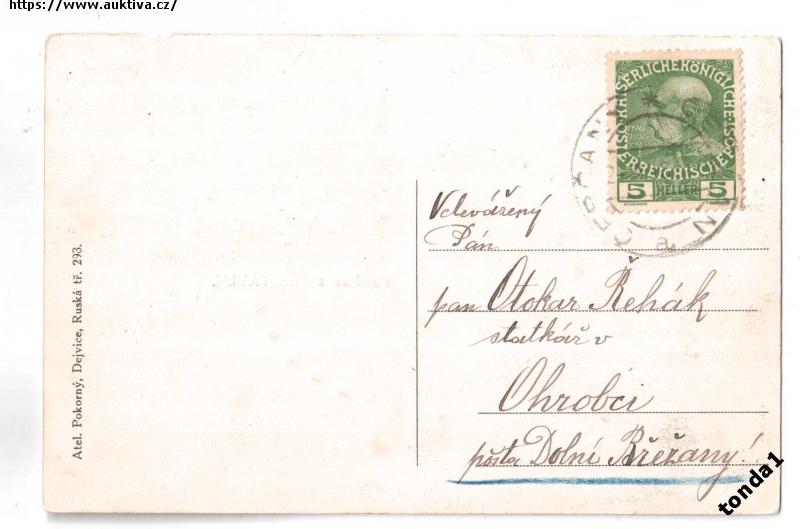 https://www.auktiva.cz/
KAISERLICHE KÖNIGLICHE
ÖSTERREICHISCHE POST
5 HELLER 5
Velevážený
Pán
pan Otokar Řehák
statkář v
Ohrobci
pošta Dolní Břežany!
Atel. Pokorný, Dejvice, Ruská tř. 293.
tonda1